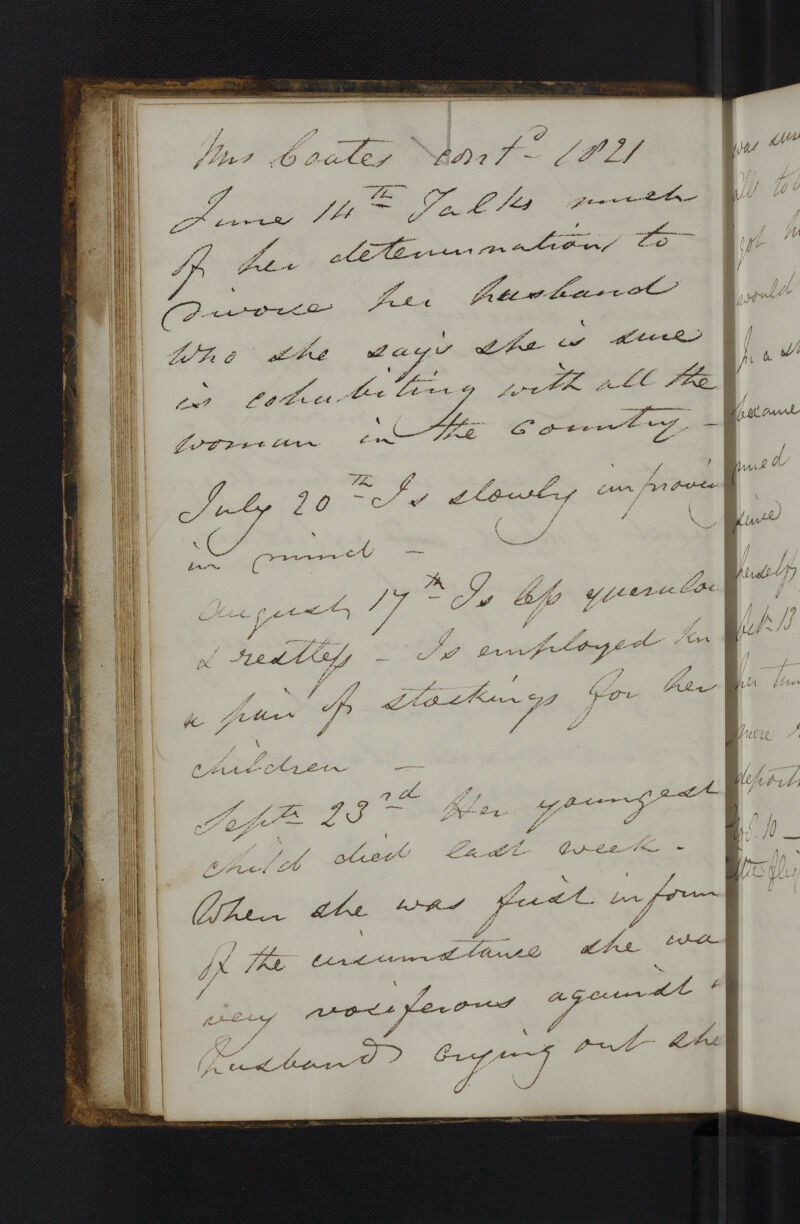 Mrs Coates contd - 1821
June 14th Talks much
of her determination to
divorce her husband
who she say's she is sure
is cohabiting with all the
woman in the Country -
July 20th Is slowly improvin
in mind -
August 17th Is less querulou
& restless - Is employed kn
a pair of stockings for her
children -
Septr 23rd Her youngest
child died last week -
When she was first inform
of the circumstance she wa
very vociferous against
husband crying out she
was sure
all to
got h
would
In a
became
since
herself
Octr 13
her
more
10 -